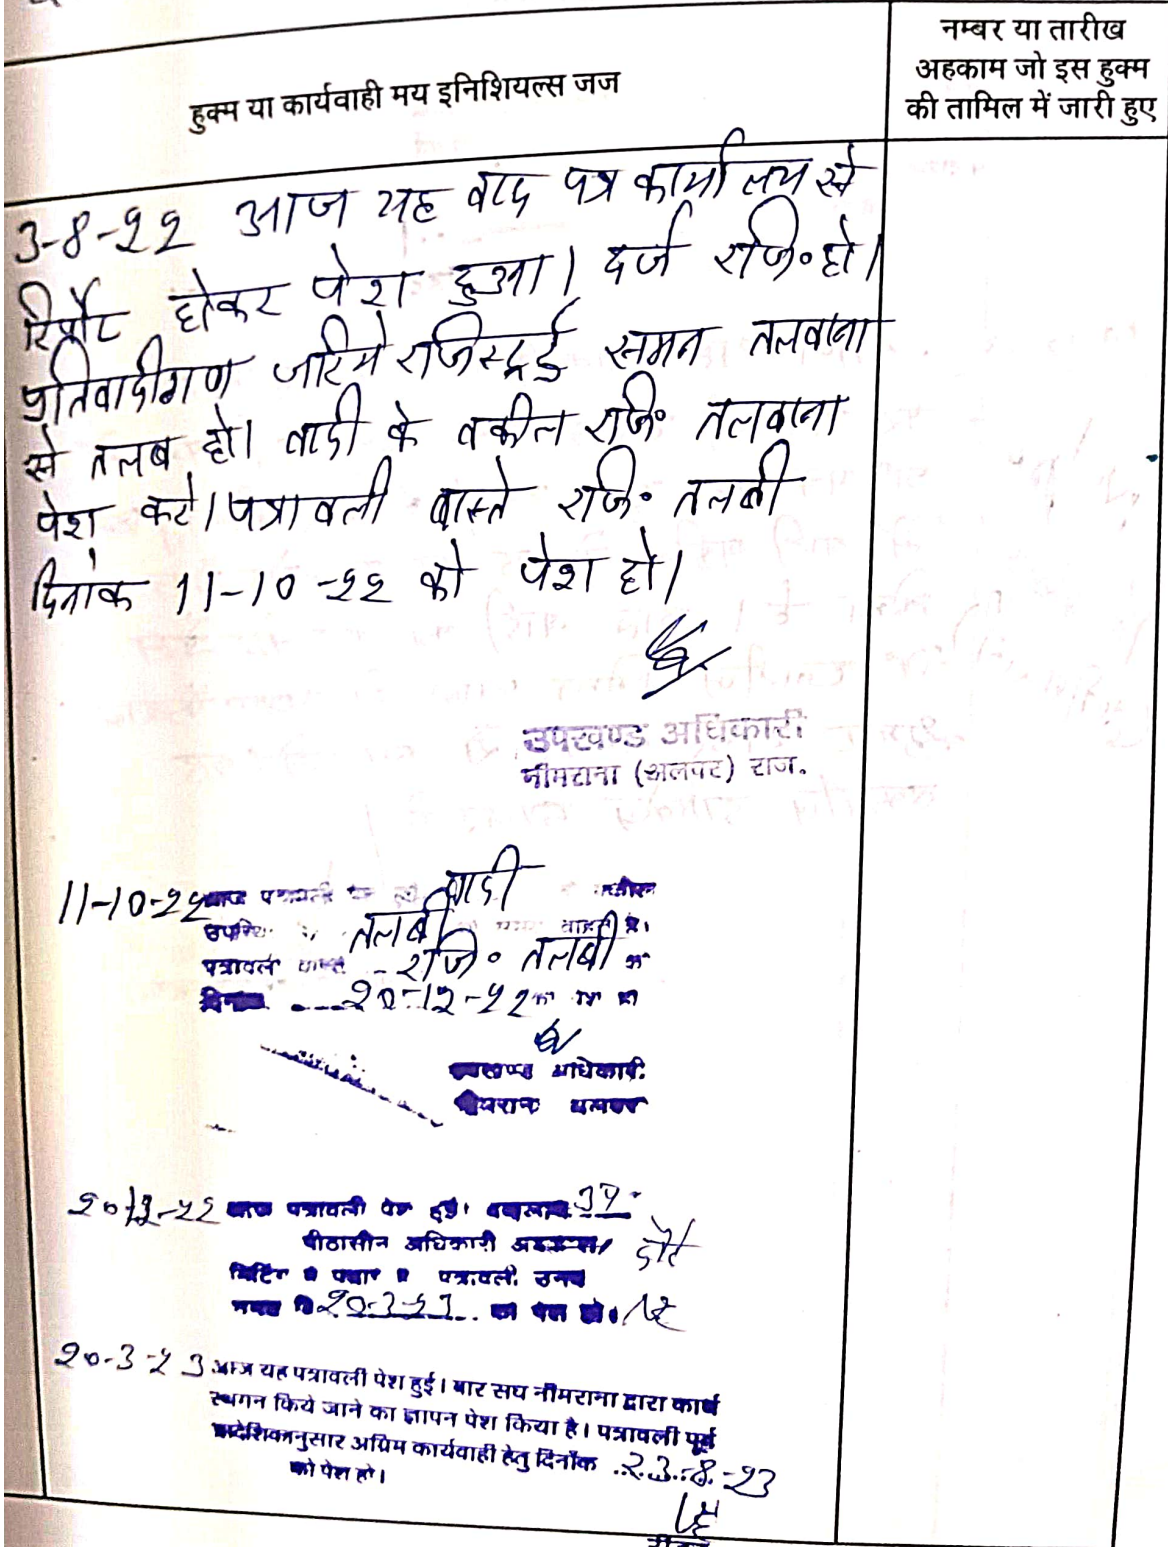 हुक्म या कार्यवाही मय इनिशियल्स जज
नम्बर या तारीख
अहकाम जो इस हुक्म
की तामिल में जारी हुए
3-8-22 आज यह वाद पत्र कार्यालय से
रिर्पोट होकर पेश हुआ। दर्ज रजि॰ हो।
प्रतिवादीगण जरिये रजिस्टर्ड समन तलवाना
से तलब हो। वादी के वकील रजि॰ तलवाना
पेश करे। पत्रावली वास्ते रजि॰ तलबी
दिनांक 11-10-22 को पेश हो।
उपखण्ड अधिकारी
नीमराना (अलवर) राज.
11-10-22 आज पत्रावली वादी वकील
उपस्थित तलबी
पत्रावली वास्ते रजि॰ तलबी
दिनांक 20-12-22 को पेश हो
उपखण्ड अधिकारी
नीमराना अलवर
20-12-22 आज पत्रावली पेश हुई।
पीठासीन अधिकारी दौरे
मिटिंग में पत्रावली
20-3-23 को पेश हो।
20-3-23 आज यह पत्रावली पेश हुई। बार संघ नीमराना द्वारा कार्य
स्थगन किये जाने का ज्ञापन पेश किया है। पत्रावली पूर्व
आदेशिकानुसार अग्रिम कार्यवाही हेतु दिनाँक 23-8-23
को पेश हो।